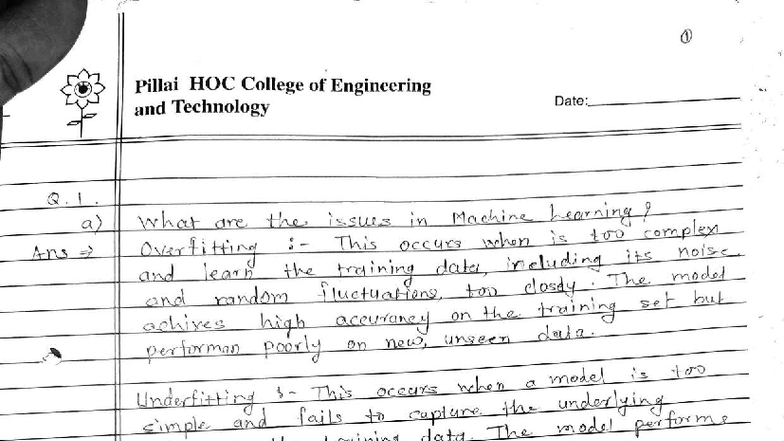 ①
Pillai HOC College of Engineering
and Technology
Date:
Q.1.
a) What are the issues in Machine Learning?
Ans ⇒ Overfitting :- This occurs when is too complex
and learn the training data, including its noise
and random fluctuations, too closely. The model
achives high accurancy on the training set but
performan poorly on new, unseen data.
Underfitting :- This occurs when a model is too
simple and fails to capture the underlying
training data. The model performs